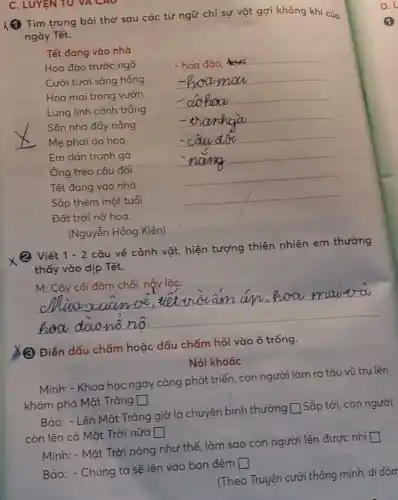 C. LUYỆN TỪ VÀ CÂU
D. L
1 Tìm trong bài thơ sau các từ ngữ chỉ sự vật gợi không khí của
ngày Tết.
Tết đang vào nhà
Hoa đào trước ngõ
- hoa đào,
Cười tươi sáng hồng
- hoa mai
Hoa mai trong vườn
- áo hoa
Lung linh cánh trắng
Sân nhà đầy nắng
- tranh gà
Mẹ phơi áo hoa
- câu đối
Em dán tranh gà
- nắng
Ông treo câu đối
Tết đang vào nhà
Sắp thêm một tuổi
Đất trời nở hoa.
(Nguyễn Hồng Kiên)
2 Viết 1 - 2 câu về cảnh vật, hiện tượng thiên nhiên em thường
thấy vào dịp Tết.
M: Cây cối đâm chồi nảy lộc.
Mùa xuân về, tiết trời ấm áp, hoa mai và
hoa đào nở rộ
3 Điền dấu chấm hoặc dấu chấm hỏi vào ô trống.
Nói khoác
Minh: - Khoa học ngày càng phát triển, con người làm ra tàu vũ trụ lên
khám phá Mặt Trăng □
Bảo: - Lên Mặt Trăng giờ là chuyện bình thường □ Sắp tới, con người
còn lên cả Mặt Trời nữa □
Minh: - Mặt Trời nóng như thế, làm sao con người lên được nhỉ □
Bảo: - Chúng ta sẽ lên vào ban đêm □
(Theo Truyện cười thông minh, dí dỏm